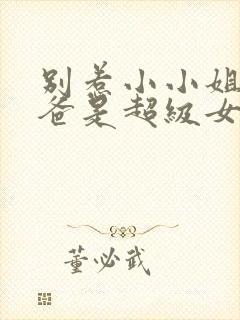 别惹小小姐
爸是超级女
董必武